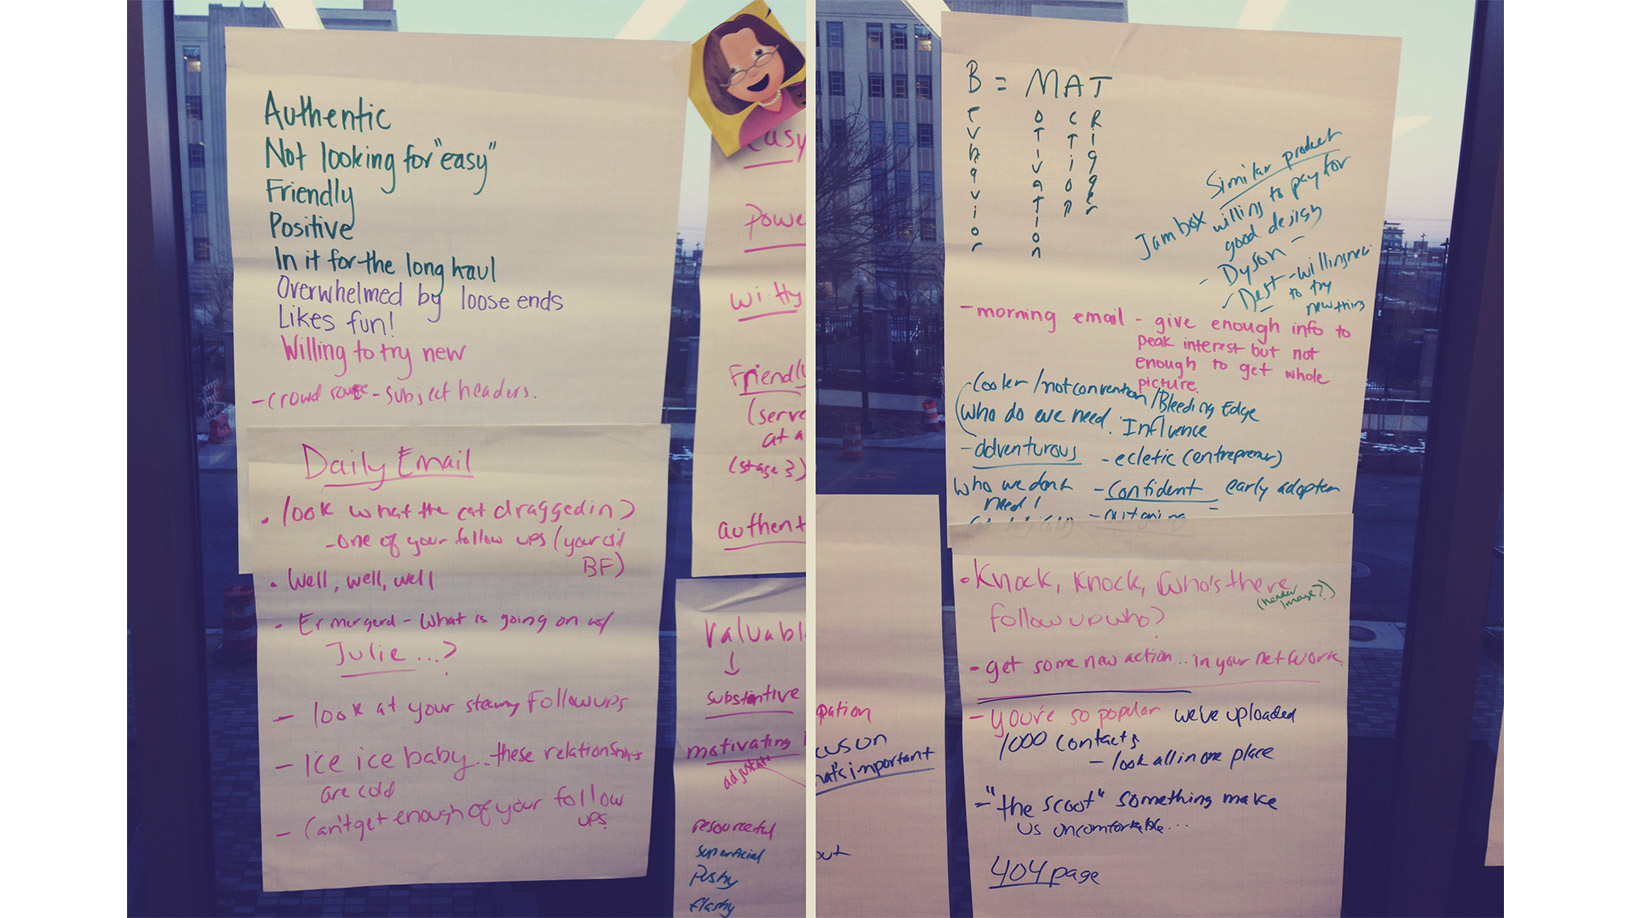 Authentic
Not looking for "easy"
Friendly
Positive
In it for the long haul
Overwhelmed by loose ends
Likes fun!
Willing to try new
- crowd - subject headers.
Daily Email
• look what the cat dragged in?
- one of your follow ups (your old
BF)
• Well, well, well
- Ermurgerd - What is going on w/
Julie...?
- look at your steamy Followups
- Ice ice baby... these relationships
are cold
- Can't get enough of your follow
ups.
easy
powe
witty
Friendly
(serve
at a
(stage 3)
authent
valuabl
↓
substantive
motivating
resourceful
superficial
Pushy
flashy
B = MAT
Behavior
Motivation
Action
Trigger
Similar product
Jambox willing to pay for
good design
- Dyson -
- Nest - willingness
to try
new thing
- morning email - give enough info to
peak interest but not
enough to get whole
picture.
Cooler / not convention / Bleeding Edge
Who do we need. Influence
- adventurous - ecletic (entreprener)
Who we dont
need!
- confident early adopters
pation
cus on
hat's important
out
• Knock, Knock, Who's there
(header
image?)
follow up who?
- get some new action... in your network.
- you're so popular we've uploaded
1000 contacts
- look all in one place
- "the scoot" something make
us uncomfortable...
404 page